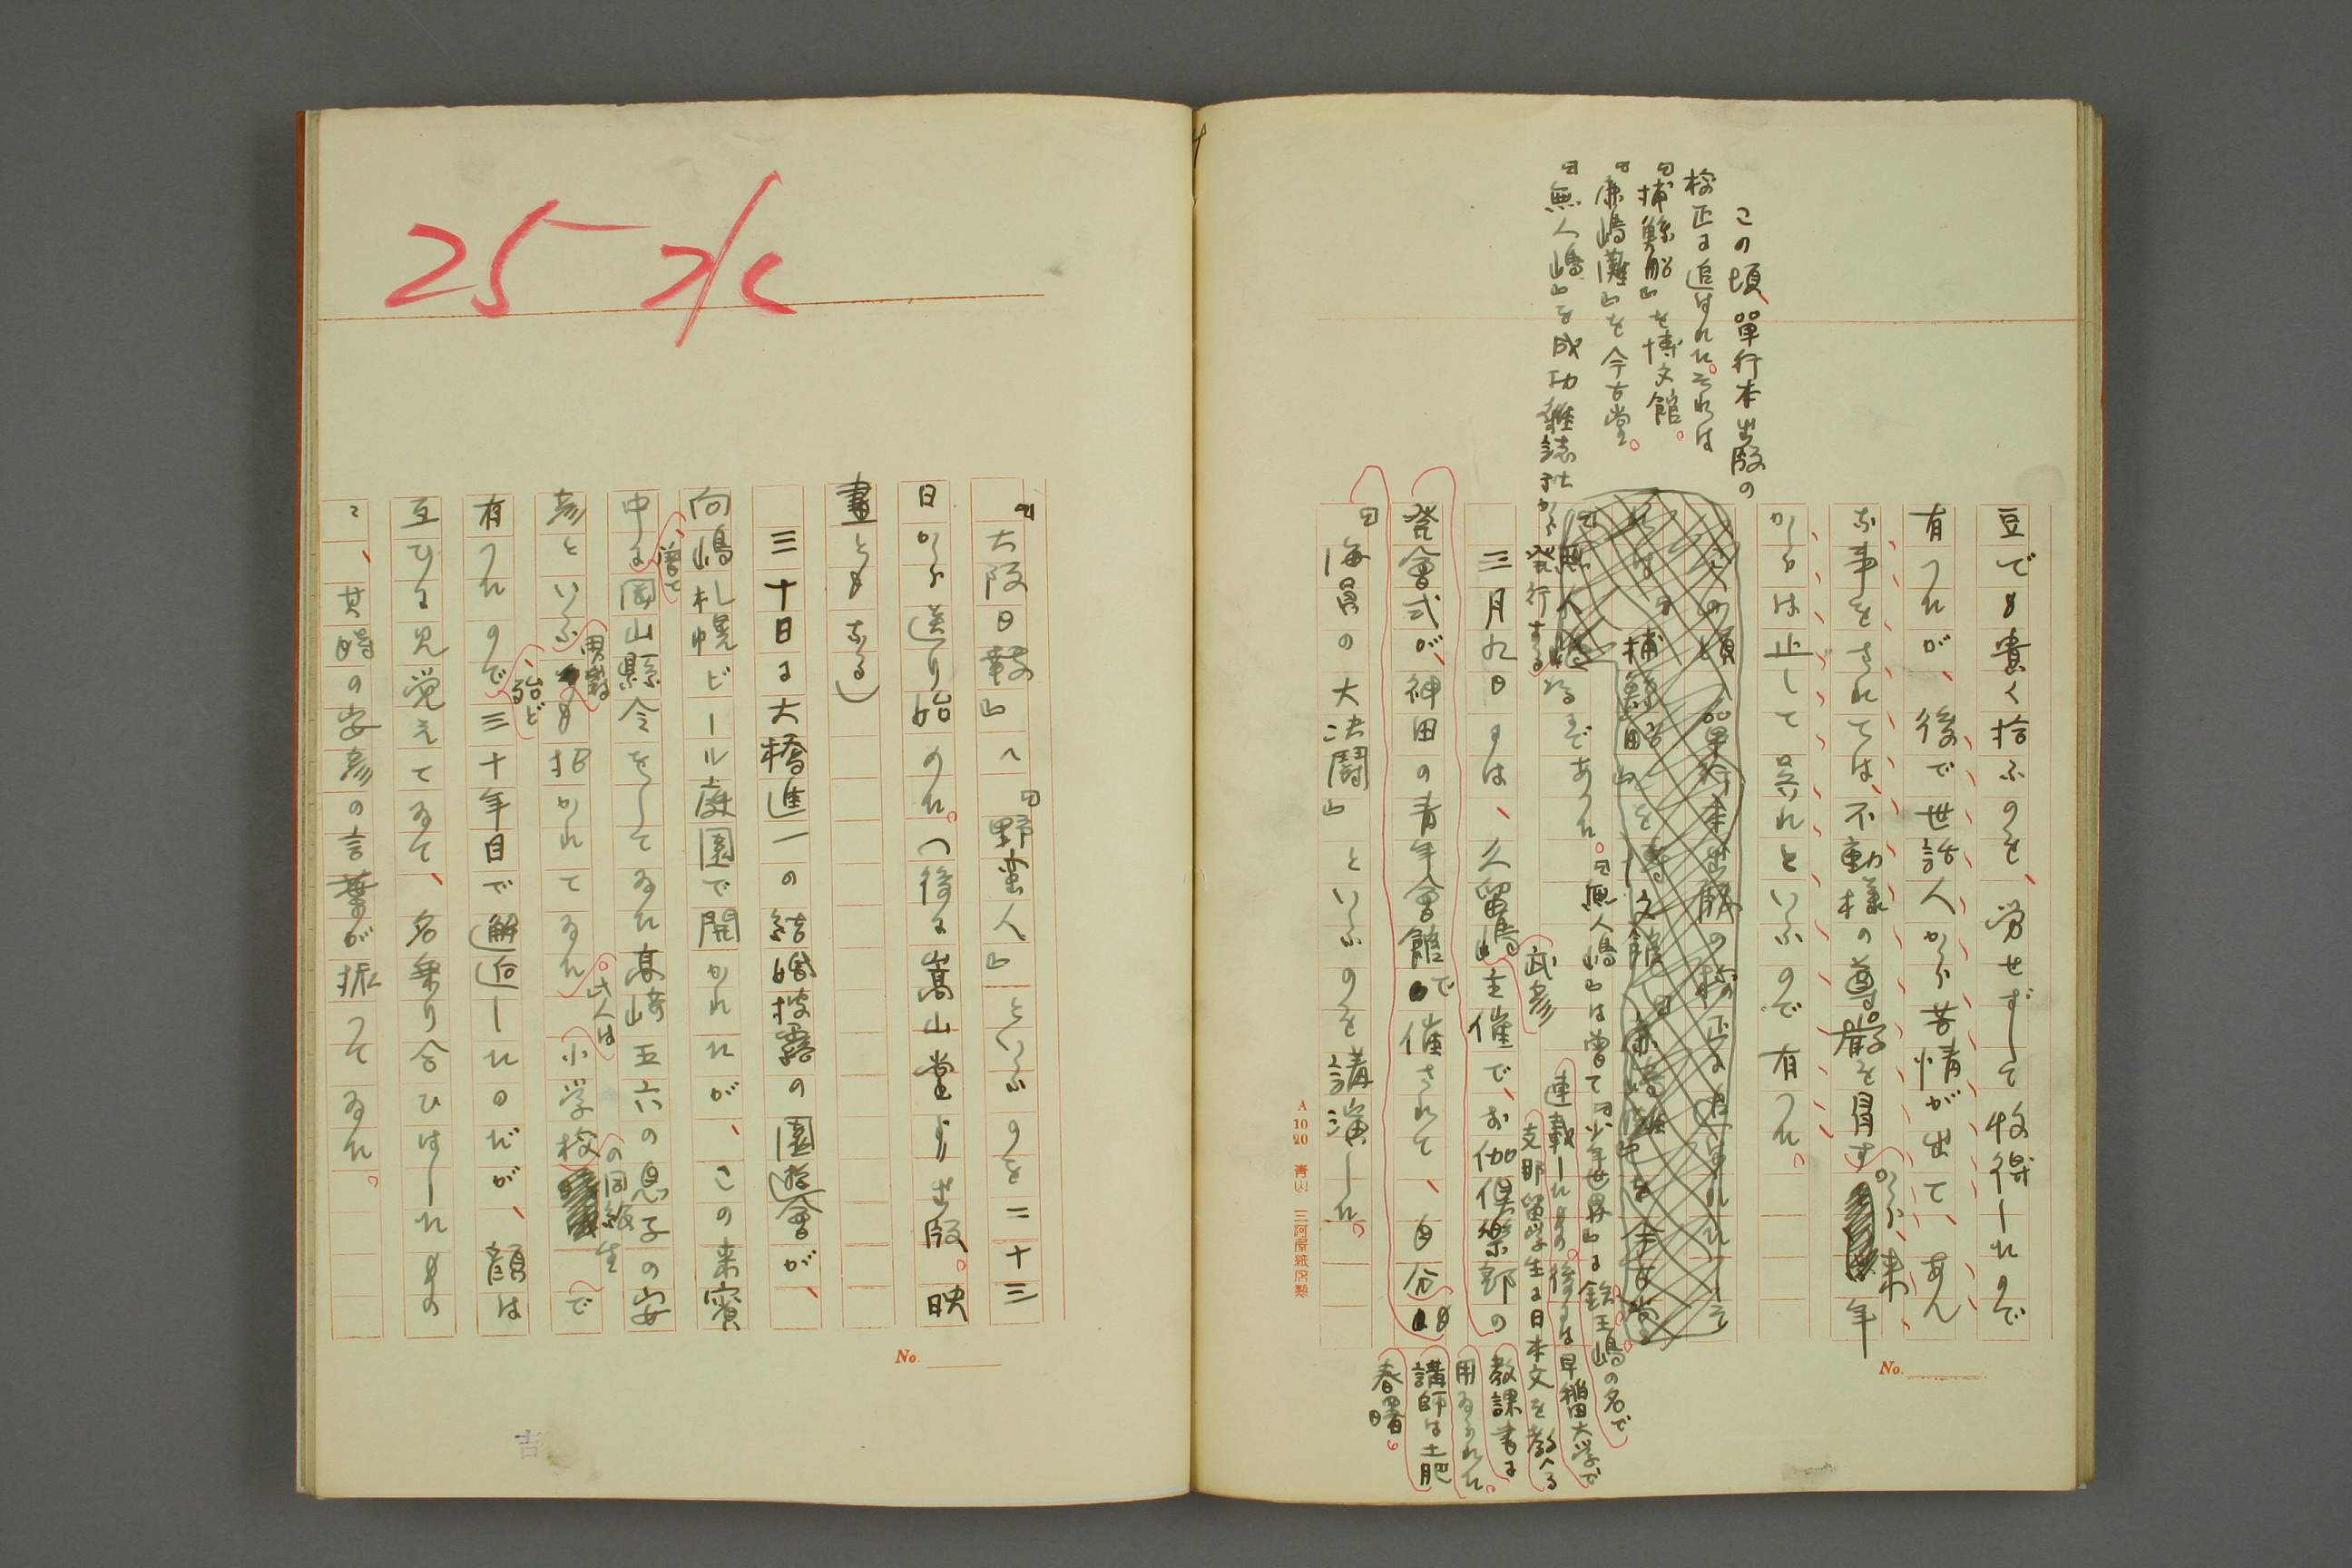 豆でも貴く拾ふのを、労せずして収得したので
有つたが、後で世話人から苦情が出て、あん
な事をされては、不動様の尊厳を冒すから、来年
からは止して呉れといふので有つた。
この頃、單行本出版の
校正に追はれた。それは
『捕鯨船』を博文館。
『鹿嶋灘』を今古堂。
『無人嶋』を成功雑誌社から
発行する
れるまであつた。『無人嶋』は曽て『少年世界』に鉄王嶋の名で
連載したもの。後には早稲田大学で
支那留学生に日本文を教へる
教課書に
用ゐられた。
三月九日には、久留嶋武彦主催で、お伽倶楽部の
発會式が、神田の青年會館で催されて、自分も
講師は土肥
春曙。
『海呂の大決闘』といふのを講演した。
A 10 20 青山 三河屋紙店製
No.
25 水
『大阪日報』へ『野蛮人』といふのを二十三
日から送り始めた。(後に嵩山堂より出版。映
畫ともなる)
三十日に大橋進一の結婚披露の園遊會が、
向嶋札幌ビール庭園で開かれたが、この来賓
中に、曽て岡山縣令をしてゐた高崎五六の息子の安
彦といふ男爵も招かれてゐた。此人は小学校の同級生で
有つたので、殆ど三十年目で解逅したのだが、顔は
互ひに見覚えてゐて、名乗り合ひはしたものの
、其時の安彦の言葉が振つてゐた。
No.
吉